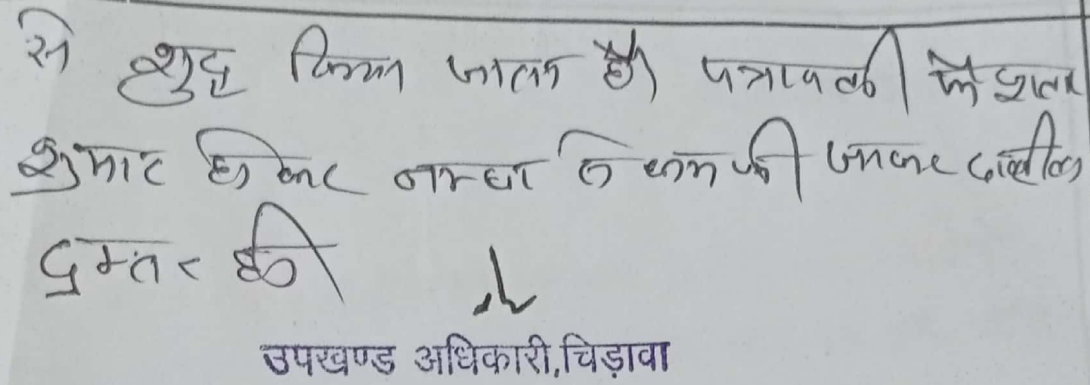 से शुद्ध किया जाता है। पत्रावली फैशल
शुमार होकर नम्बर से कम की जाकर दाखिल
दफ्तर हो।
उपखण्ड अधिकारी,चिड़ावा